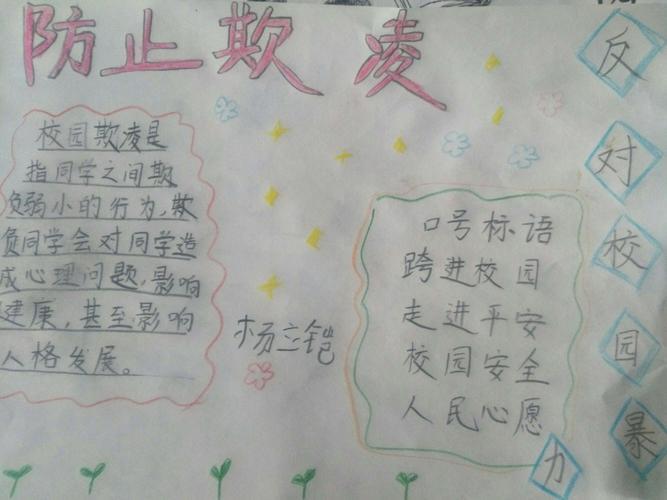 防止欺凌
校园欺凌是
指同学之间欺
负弱小的行为,欺
负同学会对同学造
成心理问题,影响
健康,甚至影响
人格发展。
杨立铠
口号标语
跨进校园
走进平安
校园安全
人民心愿
反
对
校
园
暴
力